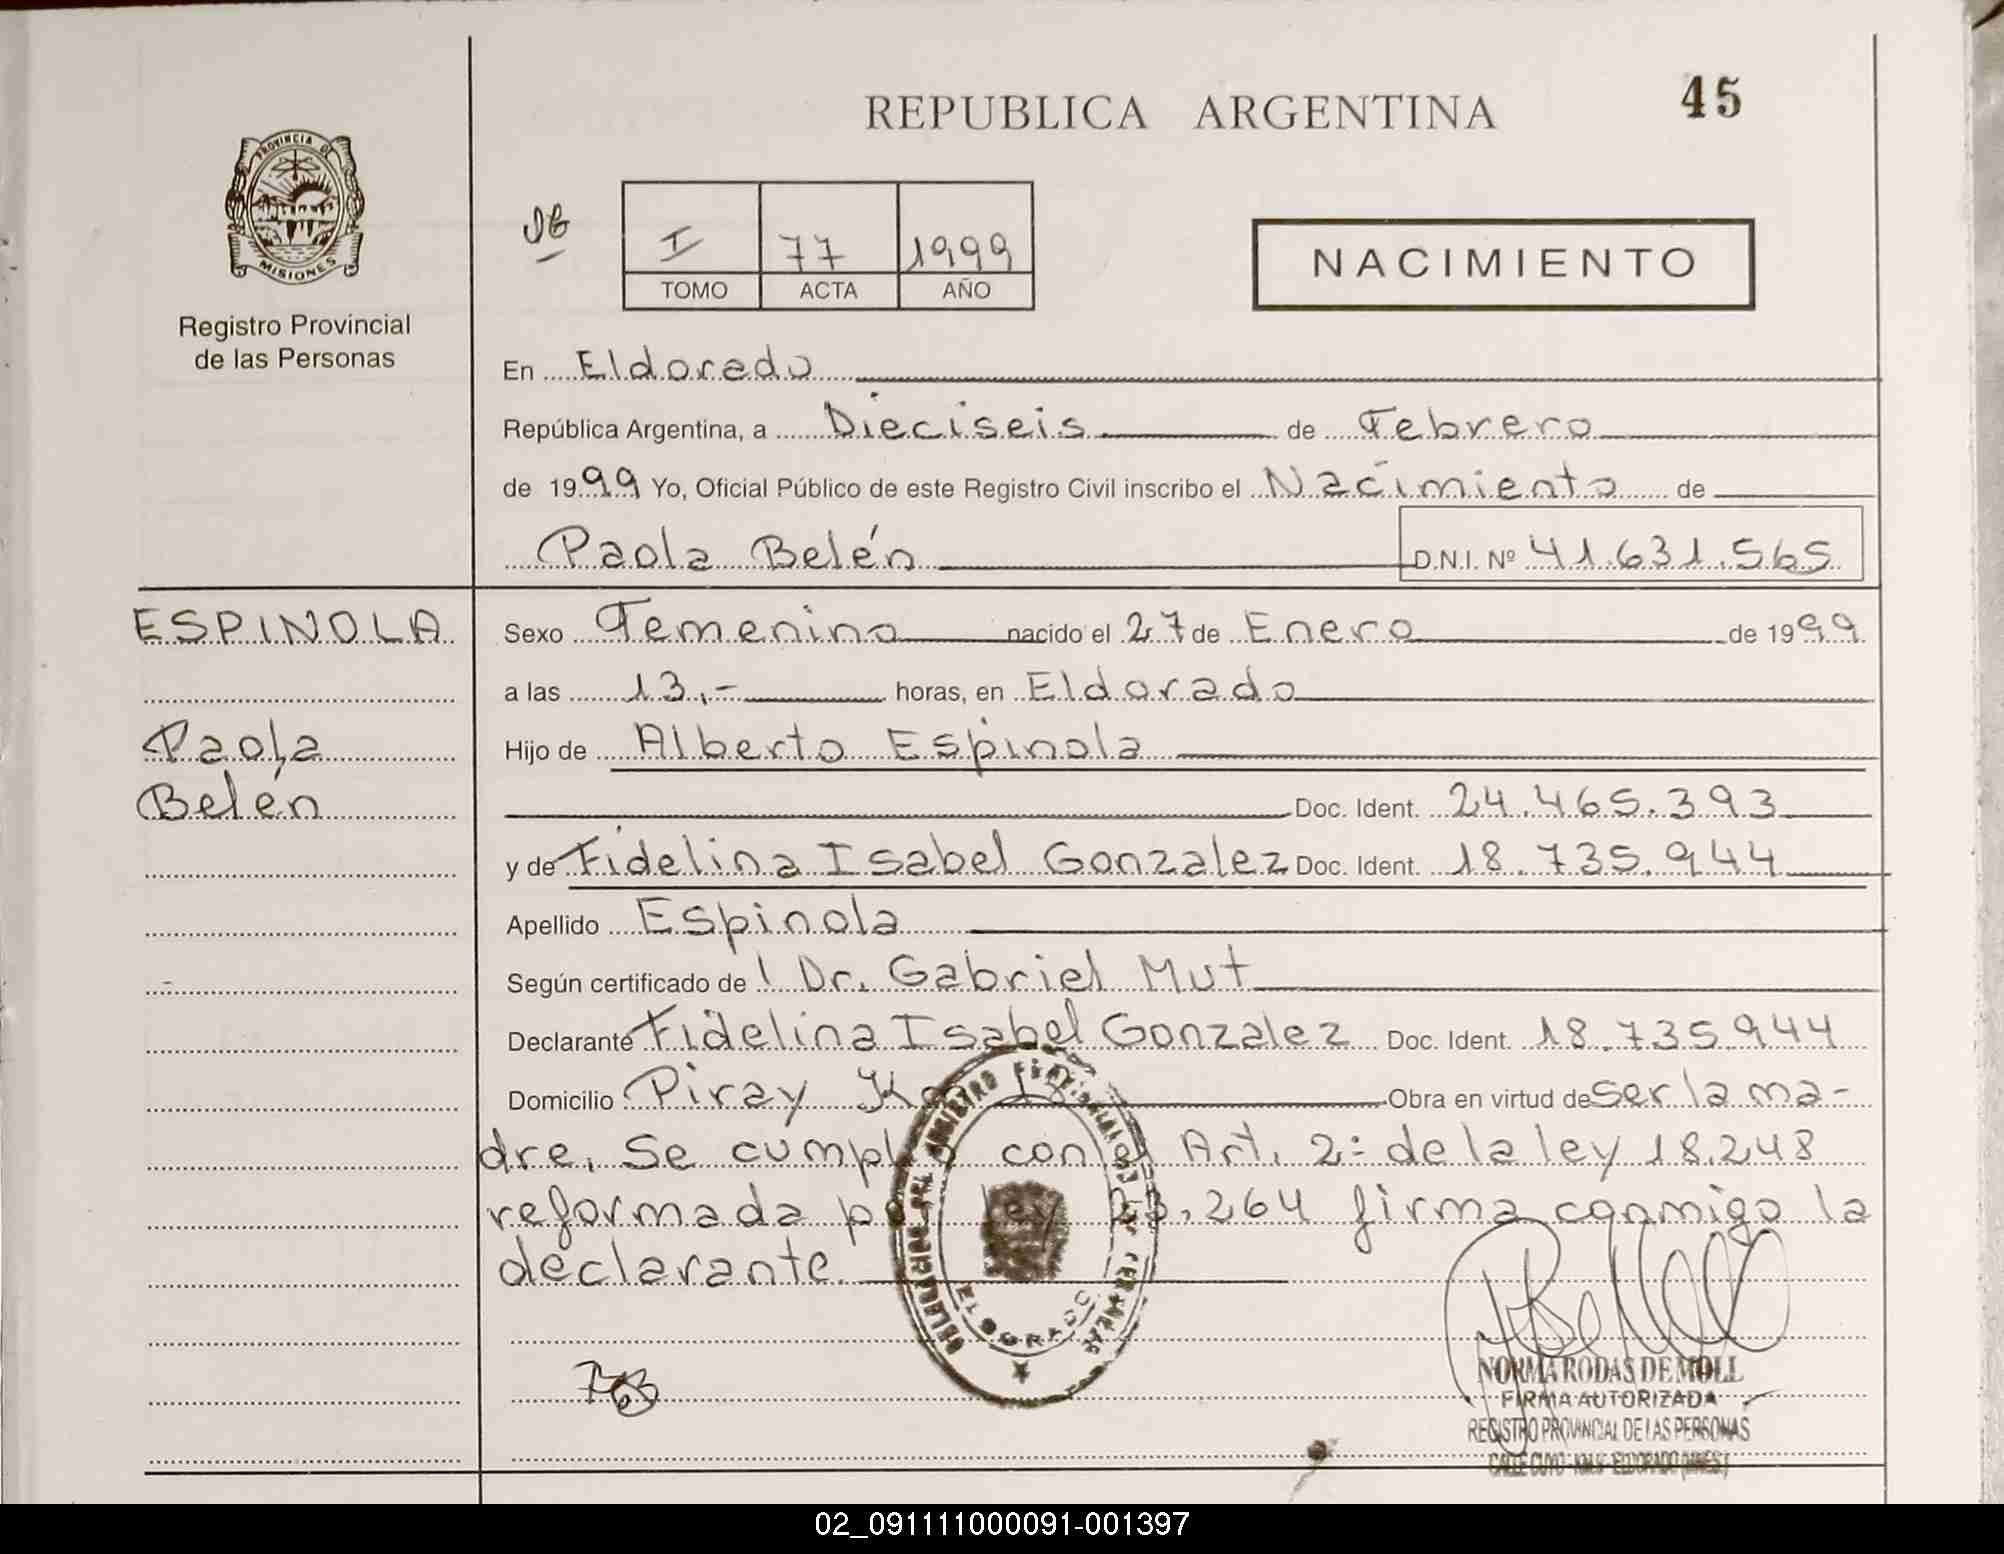 REPUBLICA ARGENTINA
45
PROVINCIA DE
MISIONES
Registro Provincial
de las Personas
I 77 1999
TOMO ACTA AÑO
NACIMIENTO
En Eldorado
República Argentina, a Dieciseis de Febrero
de 1999 Yo, Oficial Público de este Registro Civil inscribo el Nacimiento de
Paola Belén D.N.I. Nº 41.631.565
ESPINOLA
Paola
Belén
Sexo Femenino nacido el 27 de Enero de 1999
a las 13,- horas, en Eldorado
Hijo de Alberto Espinola
Doc. Ident. 24.465.393
y de Fidelina Isabel Gonzalez Doc. Ident. 18.735.944
Apellido Espinola
Según certificado de Dr. Gabriel Mut
Declarante Fidelina Isabel Gonzalez Doc. Ident. 18.735.944
Domicilio Piray Km 18 Obra en virtud de ser la ma-
dre. Se cumple con el Art. 2: de la ley 18.248
reformada por ley 23.264 firma conmigo la
declarante.
ELDORADO
NORMA RODAS DE MOLL
FIRMA AUTORIZADA
REGISTRO PROVINCIAL DE LAS PERSONAS
02_091111000091-001397